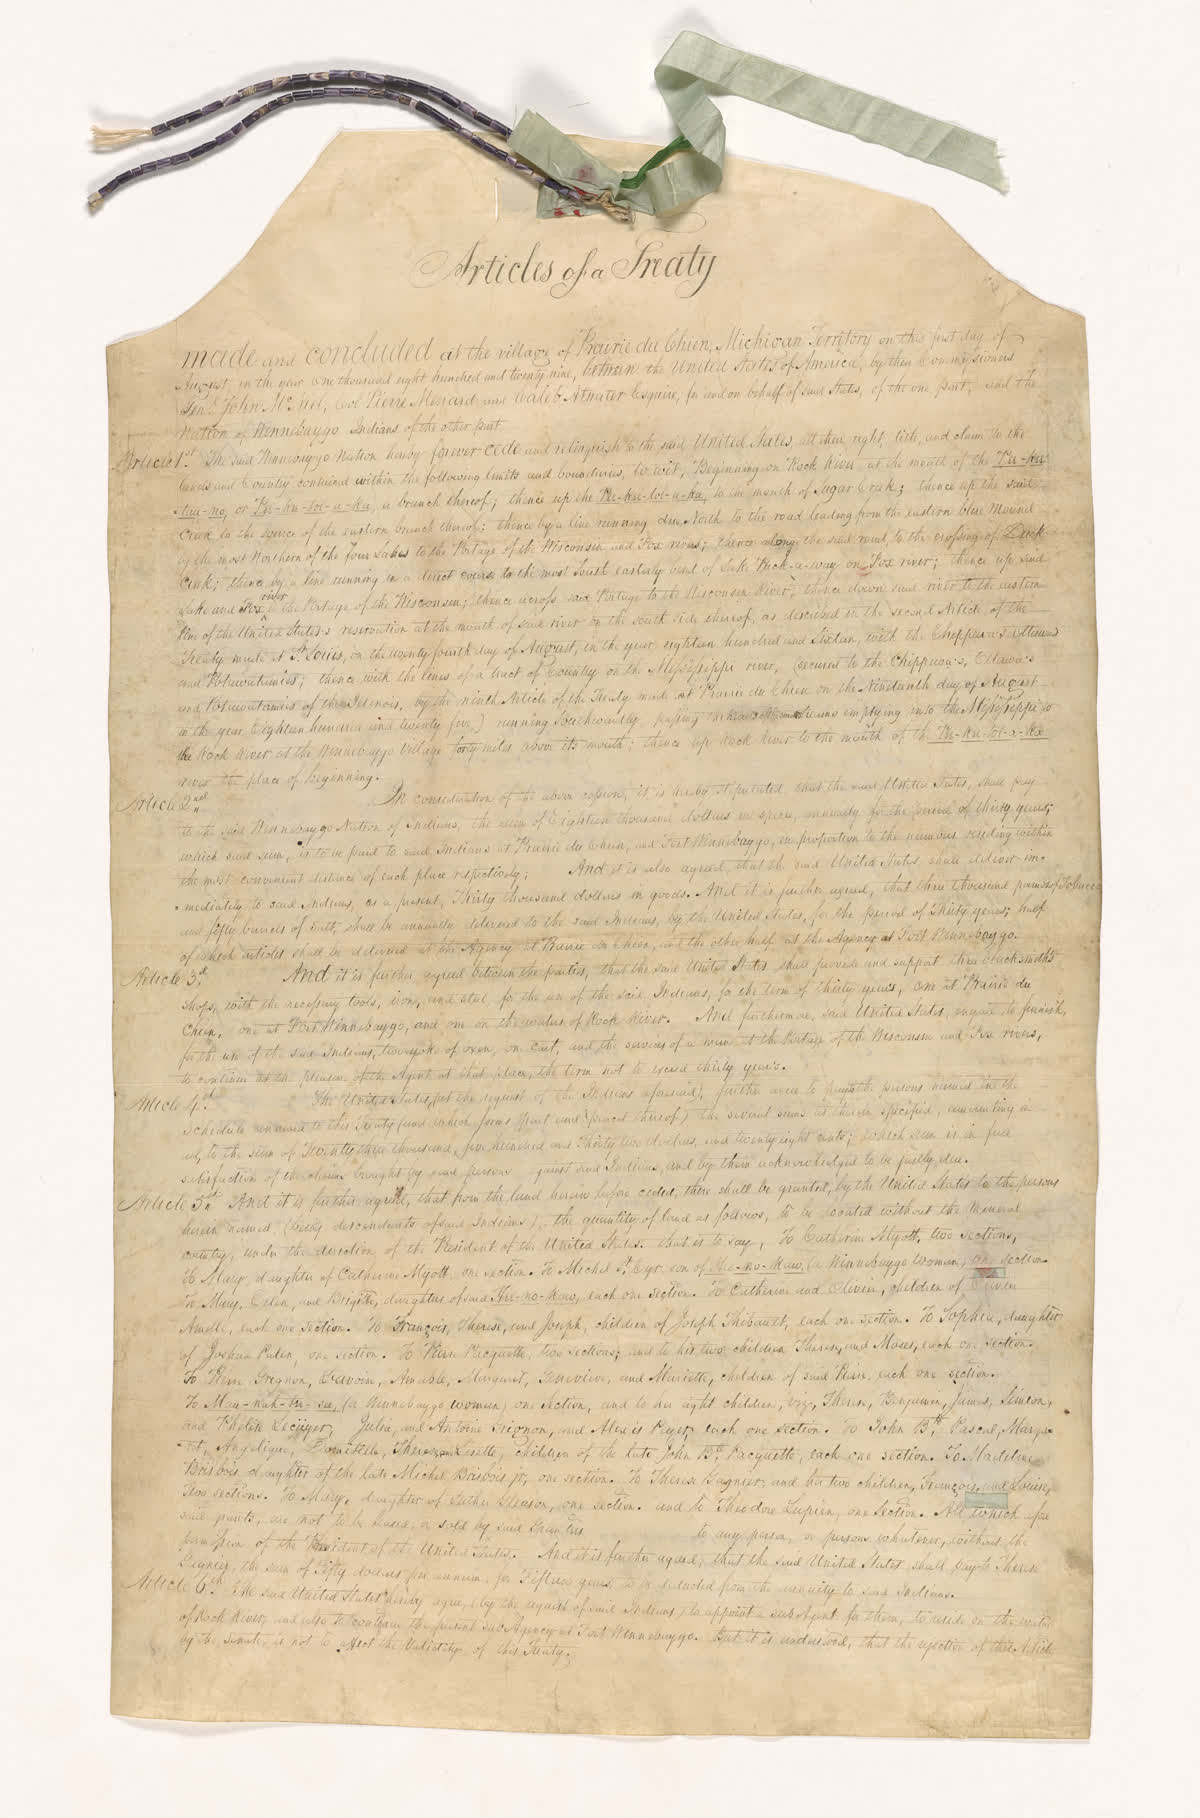 Articles of a Treaty
made and concluded at the village of Prairie du Chien, Michigan Territory on this first day of
August, in the year one thousand eight hundred and twenty nine, between the United States of America, by their Commissioners
Genl. John McNeil, Col. Pierre Menard and Caleb Atwater Esquire, for and on behalf of said States, of the one part, and the
Nation of Winnebaygo Indians of the other part.
Article 1st. The said Winnebaygo Nation hereby forever cede and relinquish to the said United States, all their right, title, and claim to the
lands and Country contained within the following limits and boundaries, to wit, Beginning on Rock River at the mouth of the
or a branch thereof; thence up the to the mouth of Sugar Creek; thence up the said
Creek to the source of the eastern branch thereof; thence by a line running due North to the road leading from the eastern blue mound
by the most Northern of the four lakes to the Portage of the Wisconsin and Fox rivers; thence along the said road to the crossing of Duck
Creek; thence by a line running in a direct course to the most South easterly bend of Lake Puck-a-way on Fox river; thence up said
Lake and Fox river to the Portage of the Wisconsin; thence across said Portage to the Wisconsin River; thence down said river to the eastern
line of the United States's reservation at the mouth of said river on the south side thereof, as described in the second Article of the
Treaty made at St. Louis, on the twenty fourth day of August, in the year eighteen hundred and sixteen, with the Chippewas Ottawas
and Potawatamies; thence with the lines of a tract of Country on the Missisippi river, (secured to the Chippewa's, Ottawa's
and Potawatamies of the Illinois, by the ninth Article of the Treaty made at Prairie du Chien on the Nineteenth day of August
in the year Eighteen hundred and twenty five) running Southwardly passing the streams emptying into the Missisippi to
the Rock River at the Winnebaygo Village forty miles above its mouth; thence up Rock River to the mouth of the
river the place of beginning.
Article 2nd In consideration of the above cession, it is hereby stipulated, that the said United States, shall pay
to the said Winnebaygo Nation of Indians, the sum of Eighteen thousand dollars in specie, annually, for the period of thirty years;
which said sum, is to be paid to said Indians at Prairie du Chien, and Fort Winnebaygo, in proportion to the numbers residing within
the most convenient distance of each place respectively; And it is also agreed, that the said United States shall deliver im=
=mediately to said Indians, as a present, Thirty thousand dollars in goods. And it is further agreed, that three thousand pounds of Tobacco
and fifty barrels of Salt, shall be annually delivered to the said Indians, by the United States, for the period of Thirty years; half
of which articles shall be delivered at the Agency at Prairie du Chien, and the other half at the Agency at Fort Winnebaygo.
Article 3d. And it is further agreed between the parties, that the said United States shall provide and support three blacksmith's
shops, with the necessary tools, iron, and steel, for the use of the said Indians, for the term of thirty years, one at Prairie du
Chien, one at Fort Winnebaygo, and one on the waters of Rock River. And furthermore, said United States, engage to furnish,
for the use of the said Indians, two yoke of oxen, one cart, and the services of a man at the Portage of the Wisconsin and Fox rivers,
to continue at the pleasure of the Agent at that place, the term not to exceed thirty years.
Article 4th. The United States, (at the request of the Indians aforesaid) further agree to pay to the persons named in the
Schedule annexed to this Treaty (and which forms part and parcel thereof) the several sums as therein specified, amounting in
all, to the sum of Twenty three thousand, five hundred and Thirty two dollars, and twenty eight cents; which sum is in full
satisfaction of the claims brought by said persons against said Indians, and by them acknowledged to be justly due.
Article 5th And it is further agreed, that from the land herein before ceded, there shall be granted, by the United States to the persons
herein named (being descendants of said Indians), the quantity of land as follows, to be located without the mineral
country, under the direction of the President of the United States. that is to say, To Catherine Myott, two sections,
To Mary, daughter of Catherine Myott, one section. To Michel St. Cyr son of (a Winnebaygo woman) one section.
To Mary, Ellen, and Brigitte, daughters of said each one section. To Catherine and Olivier, children of Olivier
Amelle, each one section. To François, Therese, and Joseph, children of Joseph Thibault, each one section. To Sophia, daughter
of Joshua Palen, one section. To Pierre Pacquette, two sections; and to his two children Therese, and Moses, each one section.
To Pierre Grignon, Amable, Margaret, Genevieve, and Mariette, children of said Pierre, each one section.
To (a Winnebaygo woman) one section, and to her eight children, viz, Therese, Benjamin, James, Simeon,
and Phelise Julia, and Antoine Grignon, and Alexis Peyet, each one section. To John Bte. Pascal, Margar=
=et, Angelique, Domitelle, Therese, and Lisette, children of the late John Bte. Pacquette, each one section. To Madeline
Brisbois daughter of the late Michel Brisbois Jr., one section. To Therese Gagnier, and her two children, François, and Louise,
two sections. To Mary, daughter of Luther Gleason, one section. and to Theodore Lupien, one Section. All which afore
said grants, are not to be leased, or sold by said Grantees to any person, or persons whatever, without the
permission of the President of the United States. And it is further agreed, that the said United States shall pay to Therese
Gagnier, the sum of Fifty dollars per annum, for Fifteen years, to be deducted from the annuity to said Indians.
Article 6th. The said United States hereby agree, (by the request of said Indians) to appoint a sub Agent for them, to reside on the waters
of Rock River, and also to continue the present sub Agency at Fort Winnebaygo. But it is understood, that the rejection of this Article
by the Senate, is not to affect the validity of this Treaty.